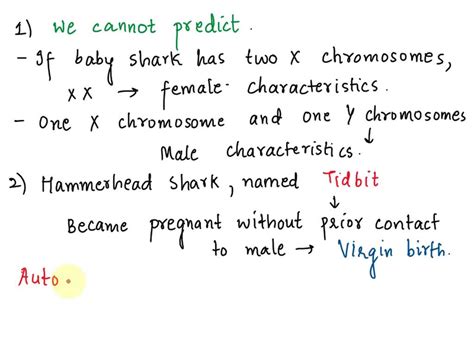 1) We cannot predict.
- If baby shark has two X chromosomes,
XX → female characteristics.
- One X chromosome and one Y chromosomes
↓
Male characteristics.
2) Hammerhead shark, named Tidbit
↓
Became pregnant without prior contact
to male → Virgin birth.
Auto